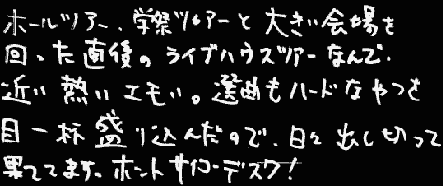 ホールツアー、学祭ツアーと大きい会場を
回った直後のライブハウスツアーなんで、
近い熱いエモい。選曲もハードなやつを
目一杯盛り込んだので、日々出し切って
果ててます。ホントサイコーデスク!